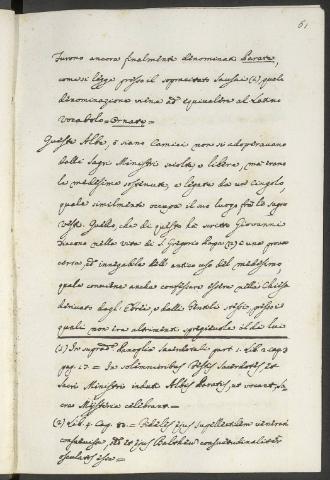 61
Furono ancora finalmente denominati Parate,
come si legge presso il sopracitato Saussai (1), quale
denominazione viene ad equivalere al Latino
vocabolo = Ornate =
Queste Albe, o siano Camici non si adoperavano
dalli Sagri Ministri sciolte, e libere, ma erano
le medesime sostenute, e legate da un Cingolo,
quale similmente occupa il suo luogo frà le Sagre
vesti. Quello, che di questo hà scritto Giovanni
Diacono nella vita di S. Gregorio Papa (2) è una prova
certa, ed innegabile dell' antico uso del medesimo
quale conviene anche confessare essere nella Chiesa
derivato dagli Ebrei, e dalli Gentili stessi, presso i
quali non era altrimenti il di lui
(1) In supradᵃ Panoplia Sacerdotali part. 1. Lib. 2 cap 3
pag. 17 = In solemnioribus Festis Sacerdotes, et
Sacri Ministri induti Albis Paratis, ut vocant, Sa-
cra Mysteria celebrant =
(2) Lib. 4. Cap. 80. = Fidelis ejus supellectilem venerari
consuevisse, et ejus Baltheum consuetudinaliter
osculatos esse =